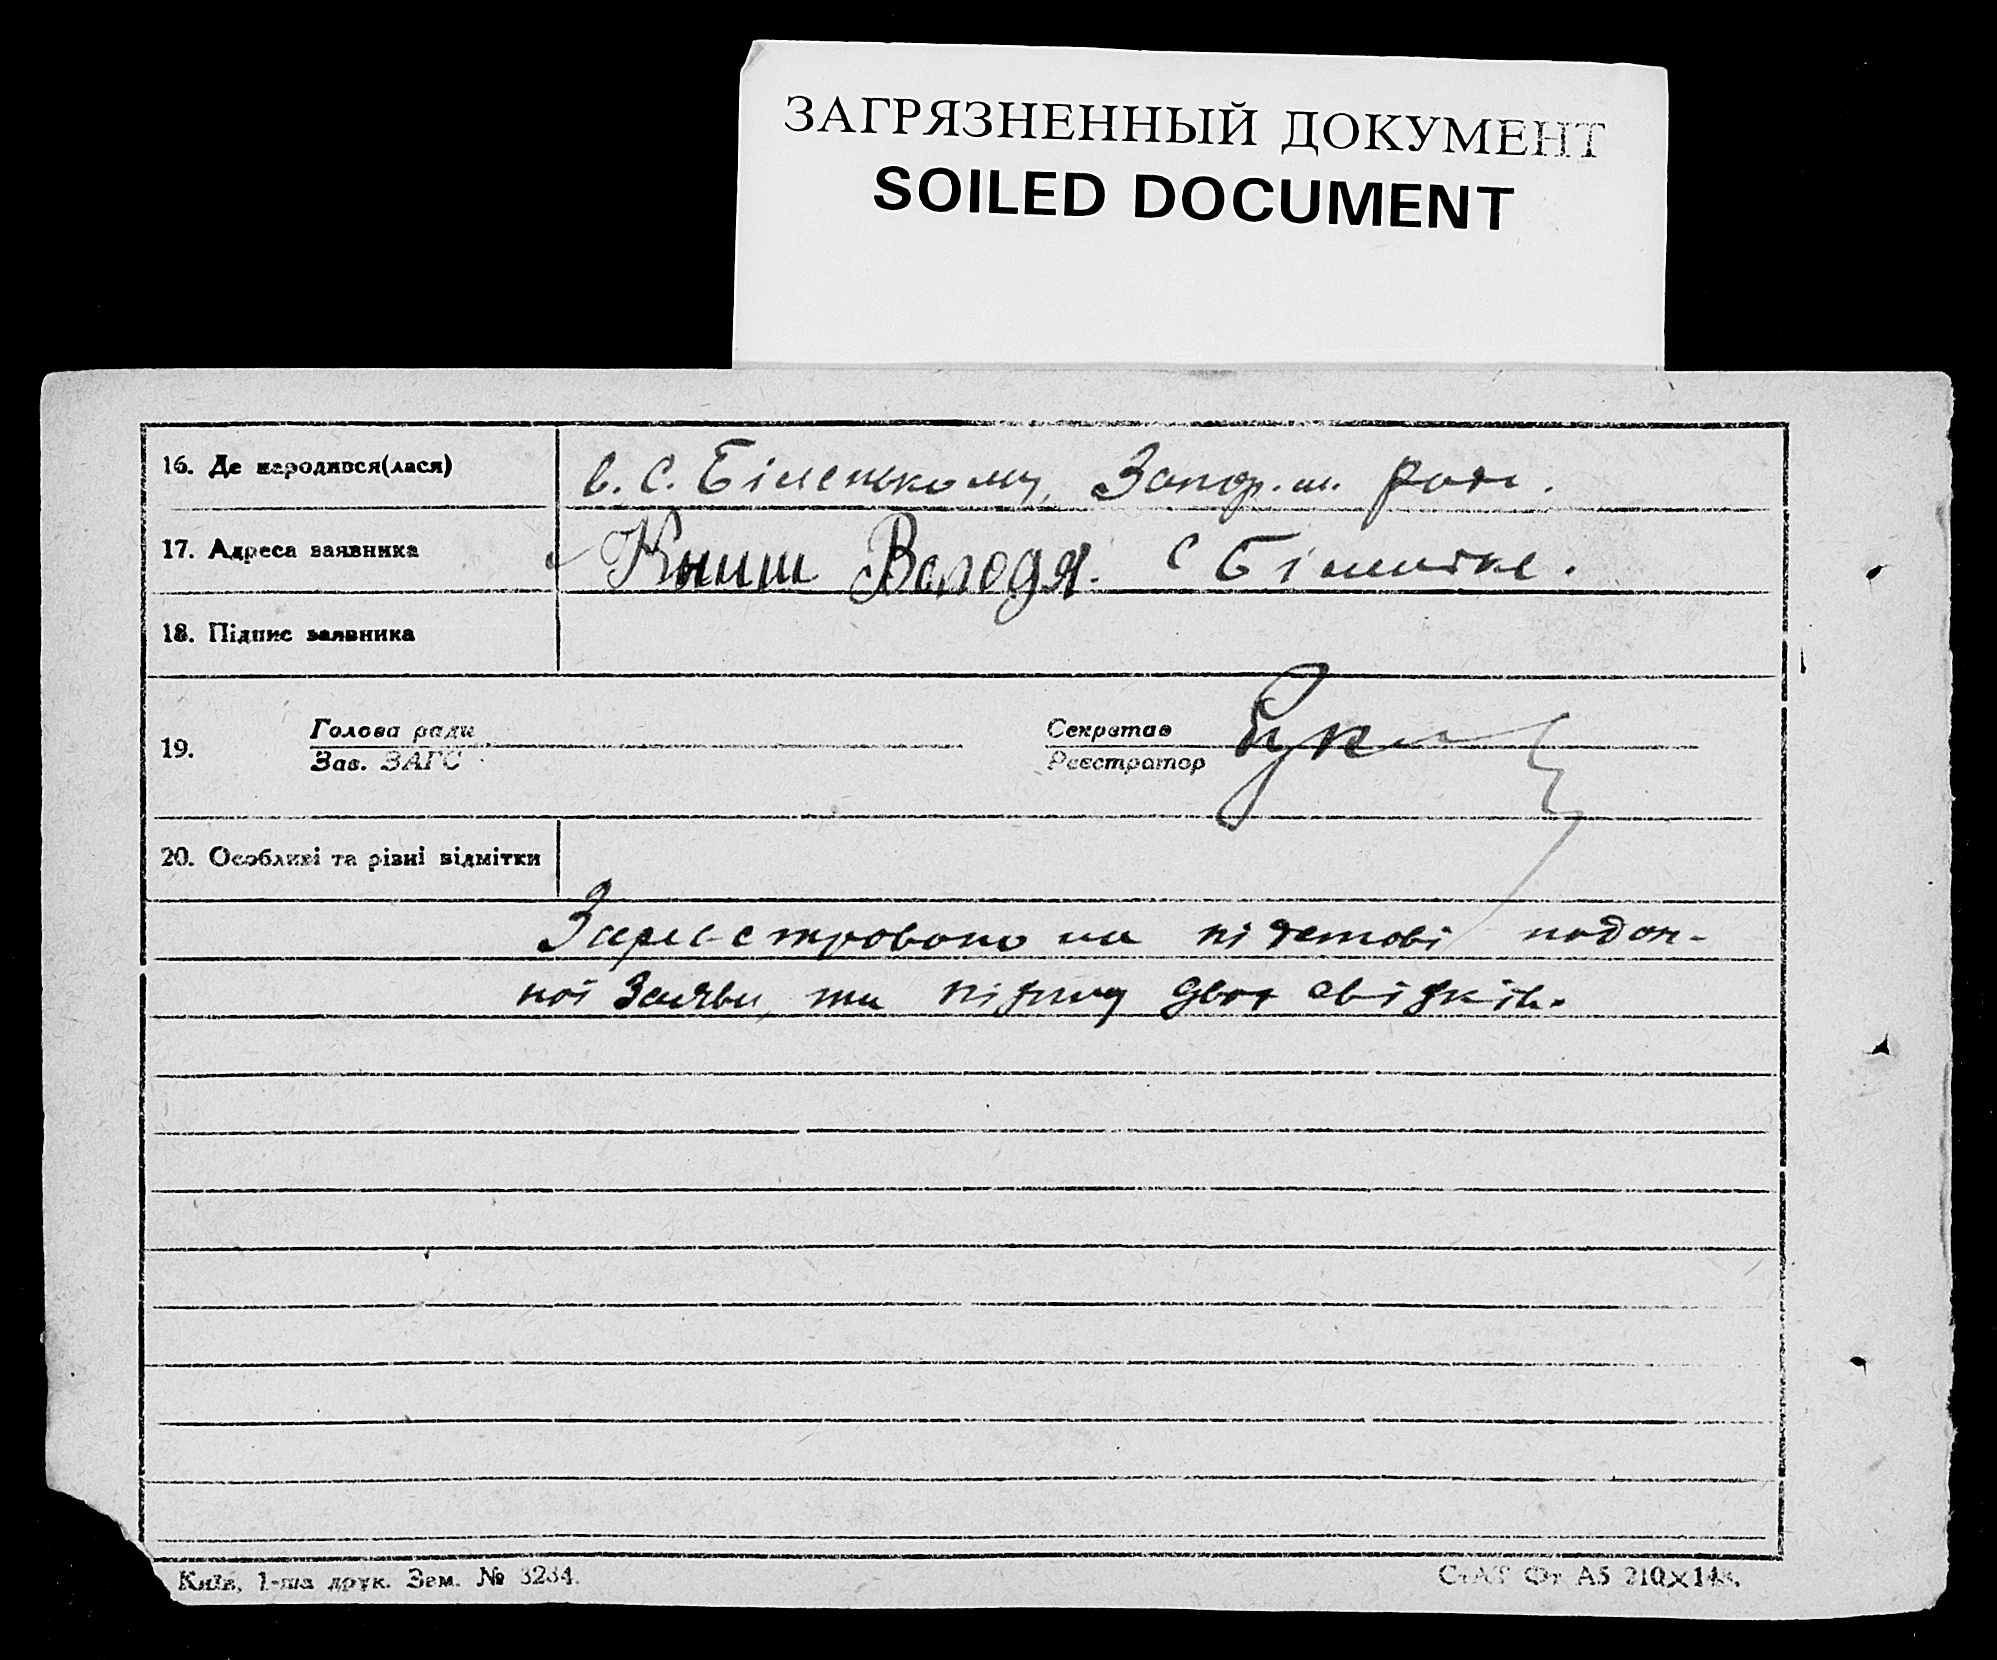 ЗАГРЯЗНЕННЫЙ ДОКУМЕНТ
SOILED DOCUMENT
16. Де народився(лася)
в. с. Біленькому, Запор. рай.
17. Адреса заявника
Книш Володя. с Біленьке.
18. Підпис заявника
19.
Голова ради
Зав. ЗАГС
Секретар
Реєстратор
20. Особливі та різні відмітки
Зареєстровано на підставі подан-
ної Заяви, та підпису двох свідків.
Київ, 1-ша друк. Зам. № 3234.
Фт А5 210×148.